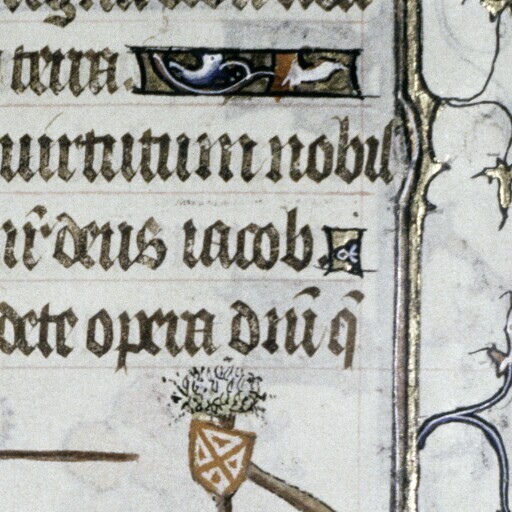 terra.
uirtutum nobis
nr̄ deus iacob.
dete opera dn̄i q̄